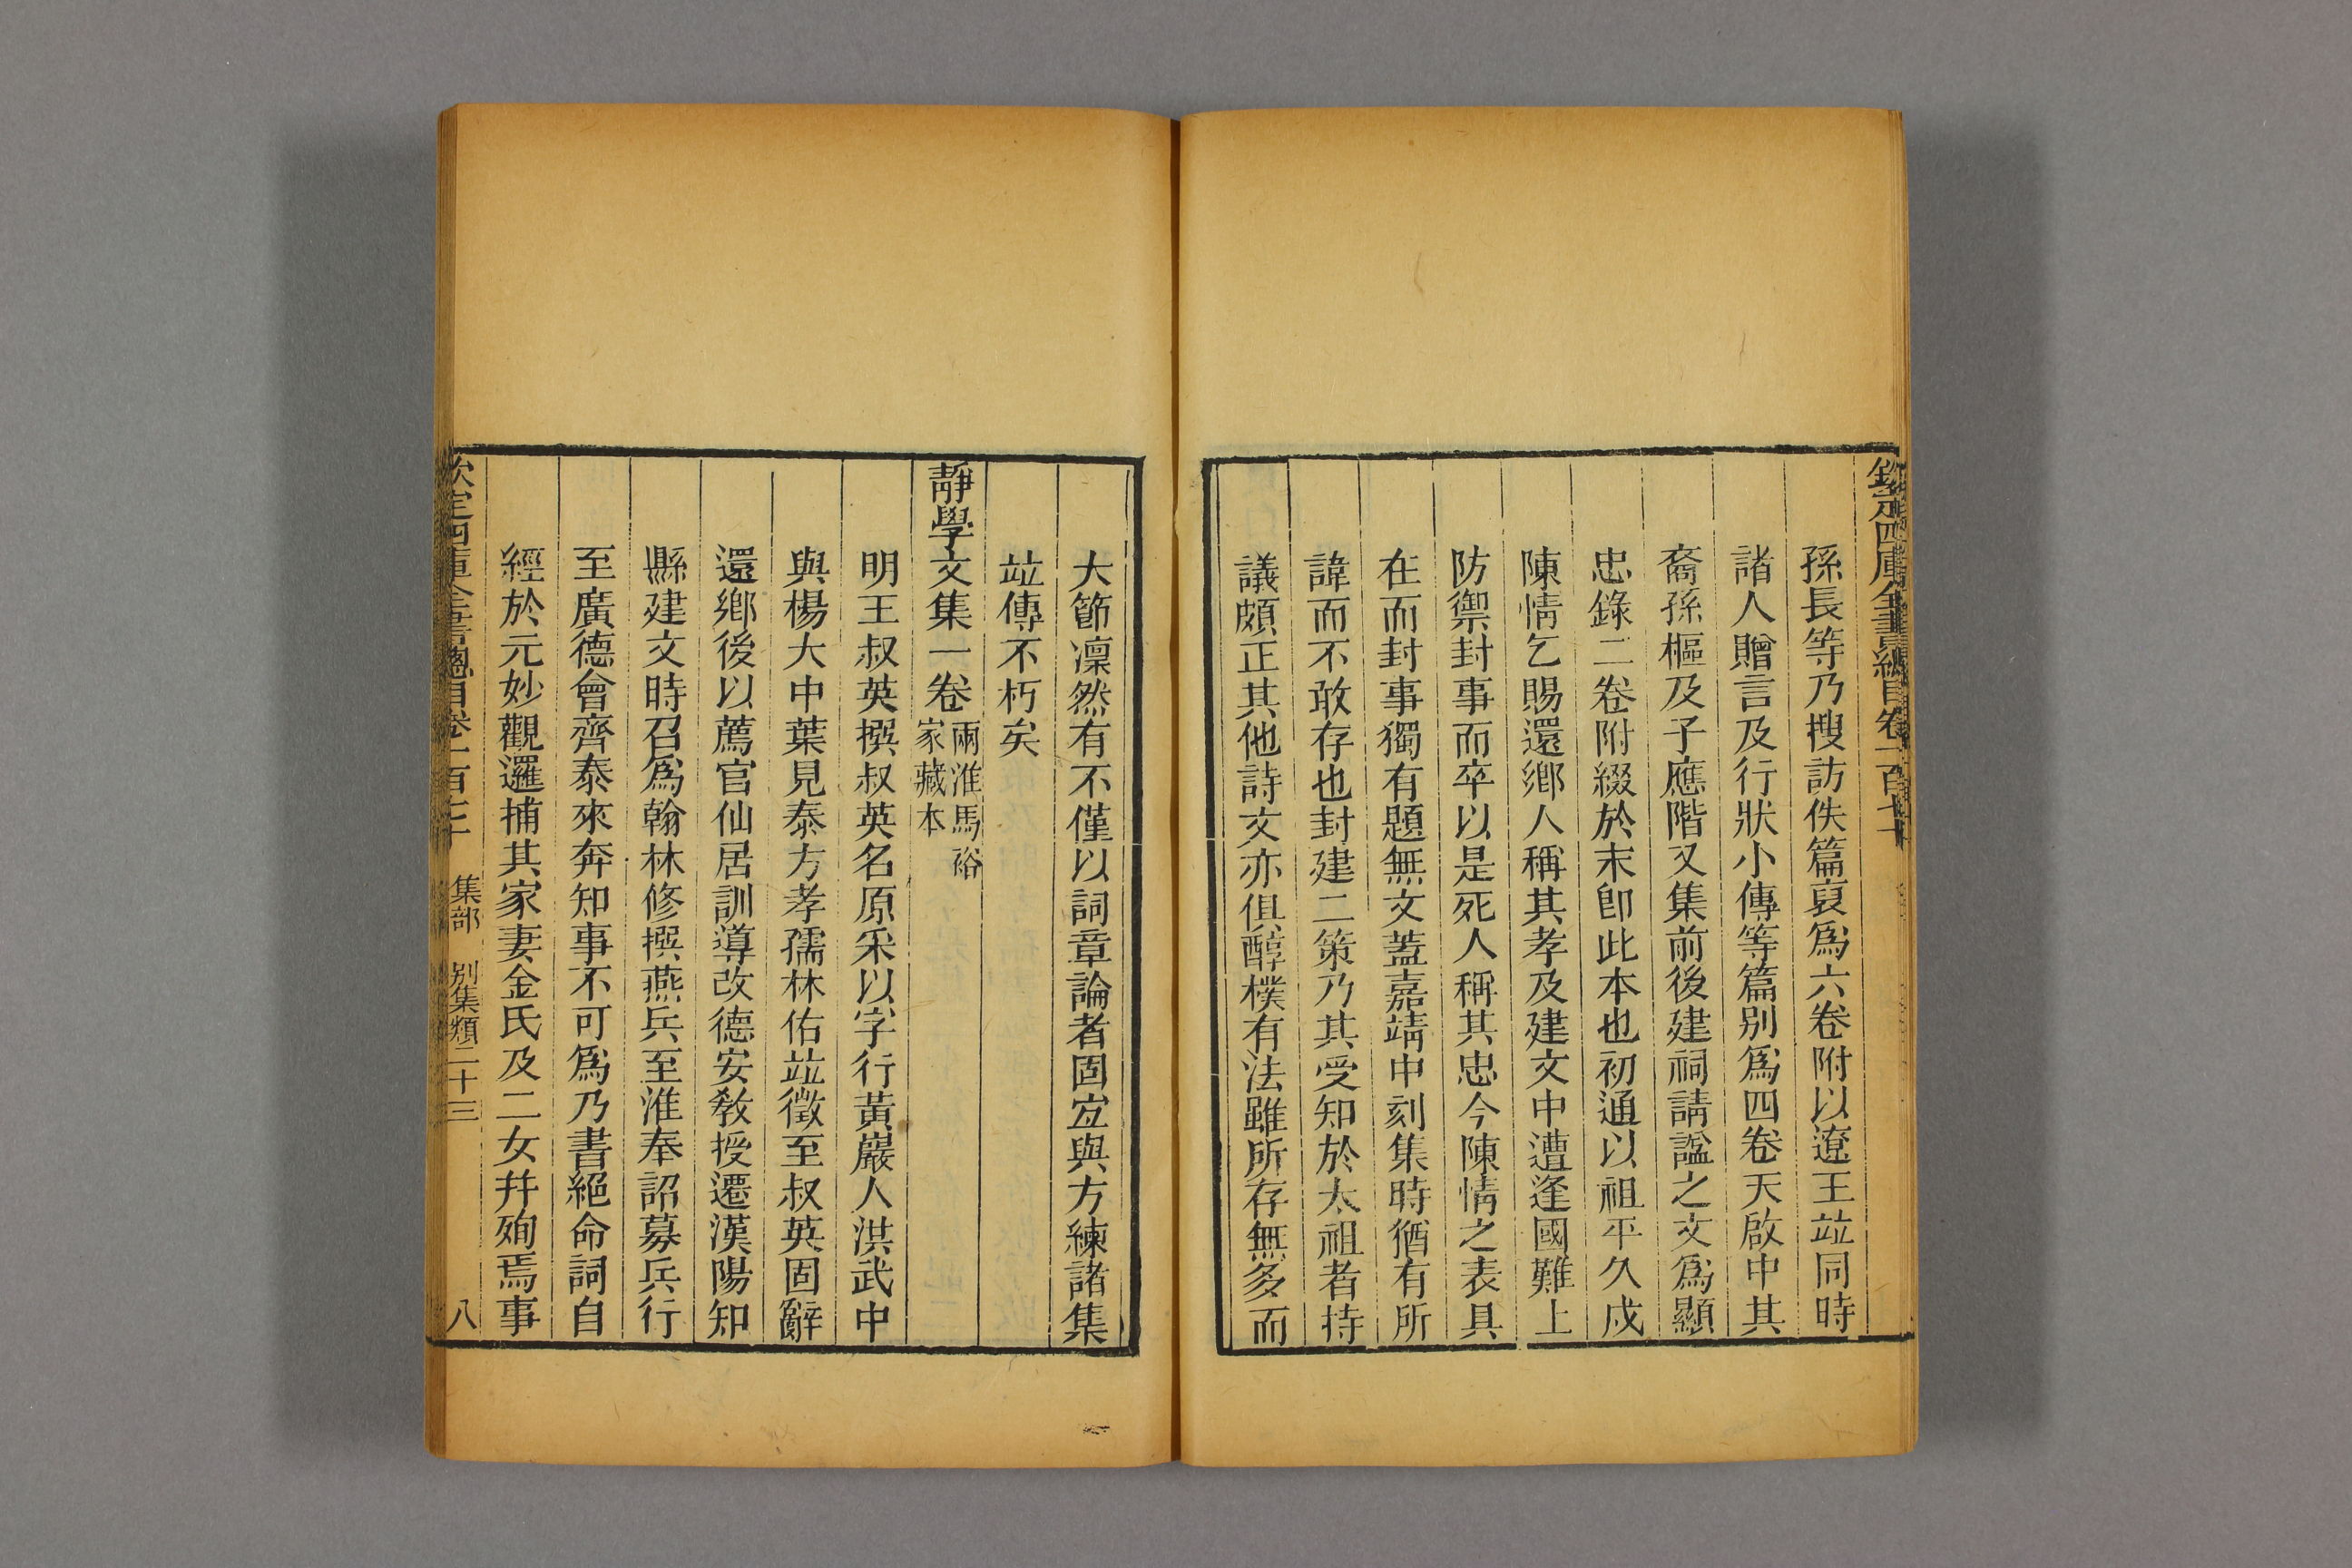 欽定四庫全書總目卷一百七十
孫長等乃搜訪佚篇裒爲六卷附以遼王竝同時
諸人贈言及行狀小傳等篇别爲四卷天啟中其
裔孫樞及子應階又集前後建祠請諡之文爲顯
忠錄二卷附綴於末卽此本也初通以祖平久戍
陳情乞賜還鄉人稱其孝及建文中遭逢國難上
防禦封事而卒以是死人稱其忠今陳情之表具
在而封事獨有題無文蓋嘉靖中刻集時猶有所
諱而不敢存也封建二策乃其受知於太祖者持
議頗正其他詩文亦俱醇樸有法雖所存無多而
大節凜然有不僅以詞章論者固宜與方練諸集
竝傳不朽矣
靜學文集一卷兩淮馬裕家藏本
明王叔英撰叔英名原采以字行黃巖人洪武中
與楊大中葉見泰方孝孺林佑竝徵至叔英固辭
還鄉後以薦官仙居訓導改德安敎授遷漢陽知
縣建文時召爲翰林修撰燕兵至淮奉詔募兵行
至廣德會齊泰來奔知事不可爲乃書絕命詞自
經於元妙觀邏捕其家妻金氏及二女幷殉焉事
欽定四庫全書總目卷一百七十 集部 别集類二十三 八